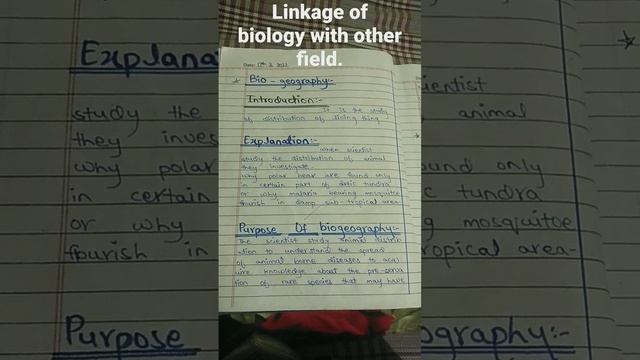 Linkage of
biology with other
field.
Date:
* Bio-geography:-
Introduction:-
It is the study
of distribution of living thing
Explanation:-
when scientist
study the distribution of animal
they investigate.
why polar bear are found only
in certain part of arctic tundra
or why malaria bearing mosquitoe
flourish in damp sub-tropical area-
Purpose Of biogeography:-
The scientist study animal distrib
ution to understand the spread
of animal borne diseases to acq
uire knowledge about the pre-serva
tion of rare species that may have
Explana
study the
they inves
why polar
in certain
or why
flourish in
Purpose
ientist
animal
ound only
ic tundra
g mosquitoe
ropical area-
ography:-